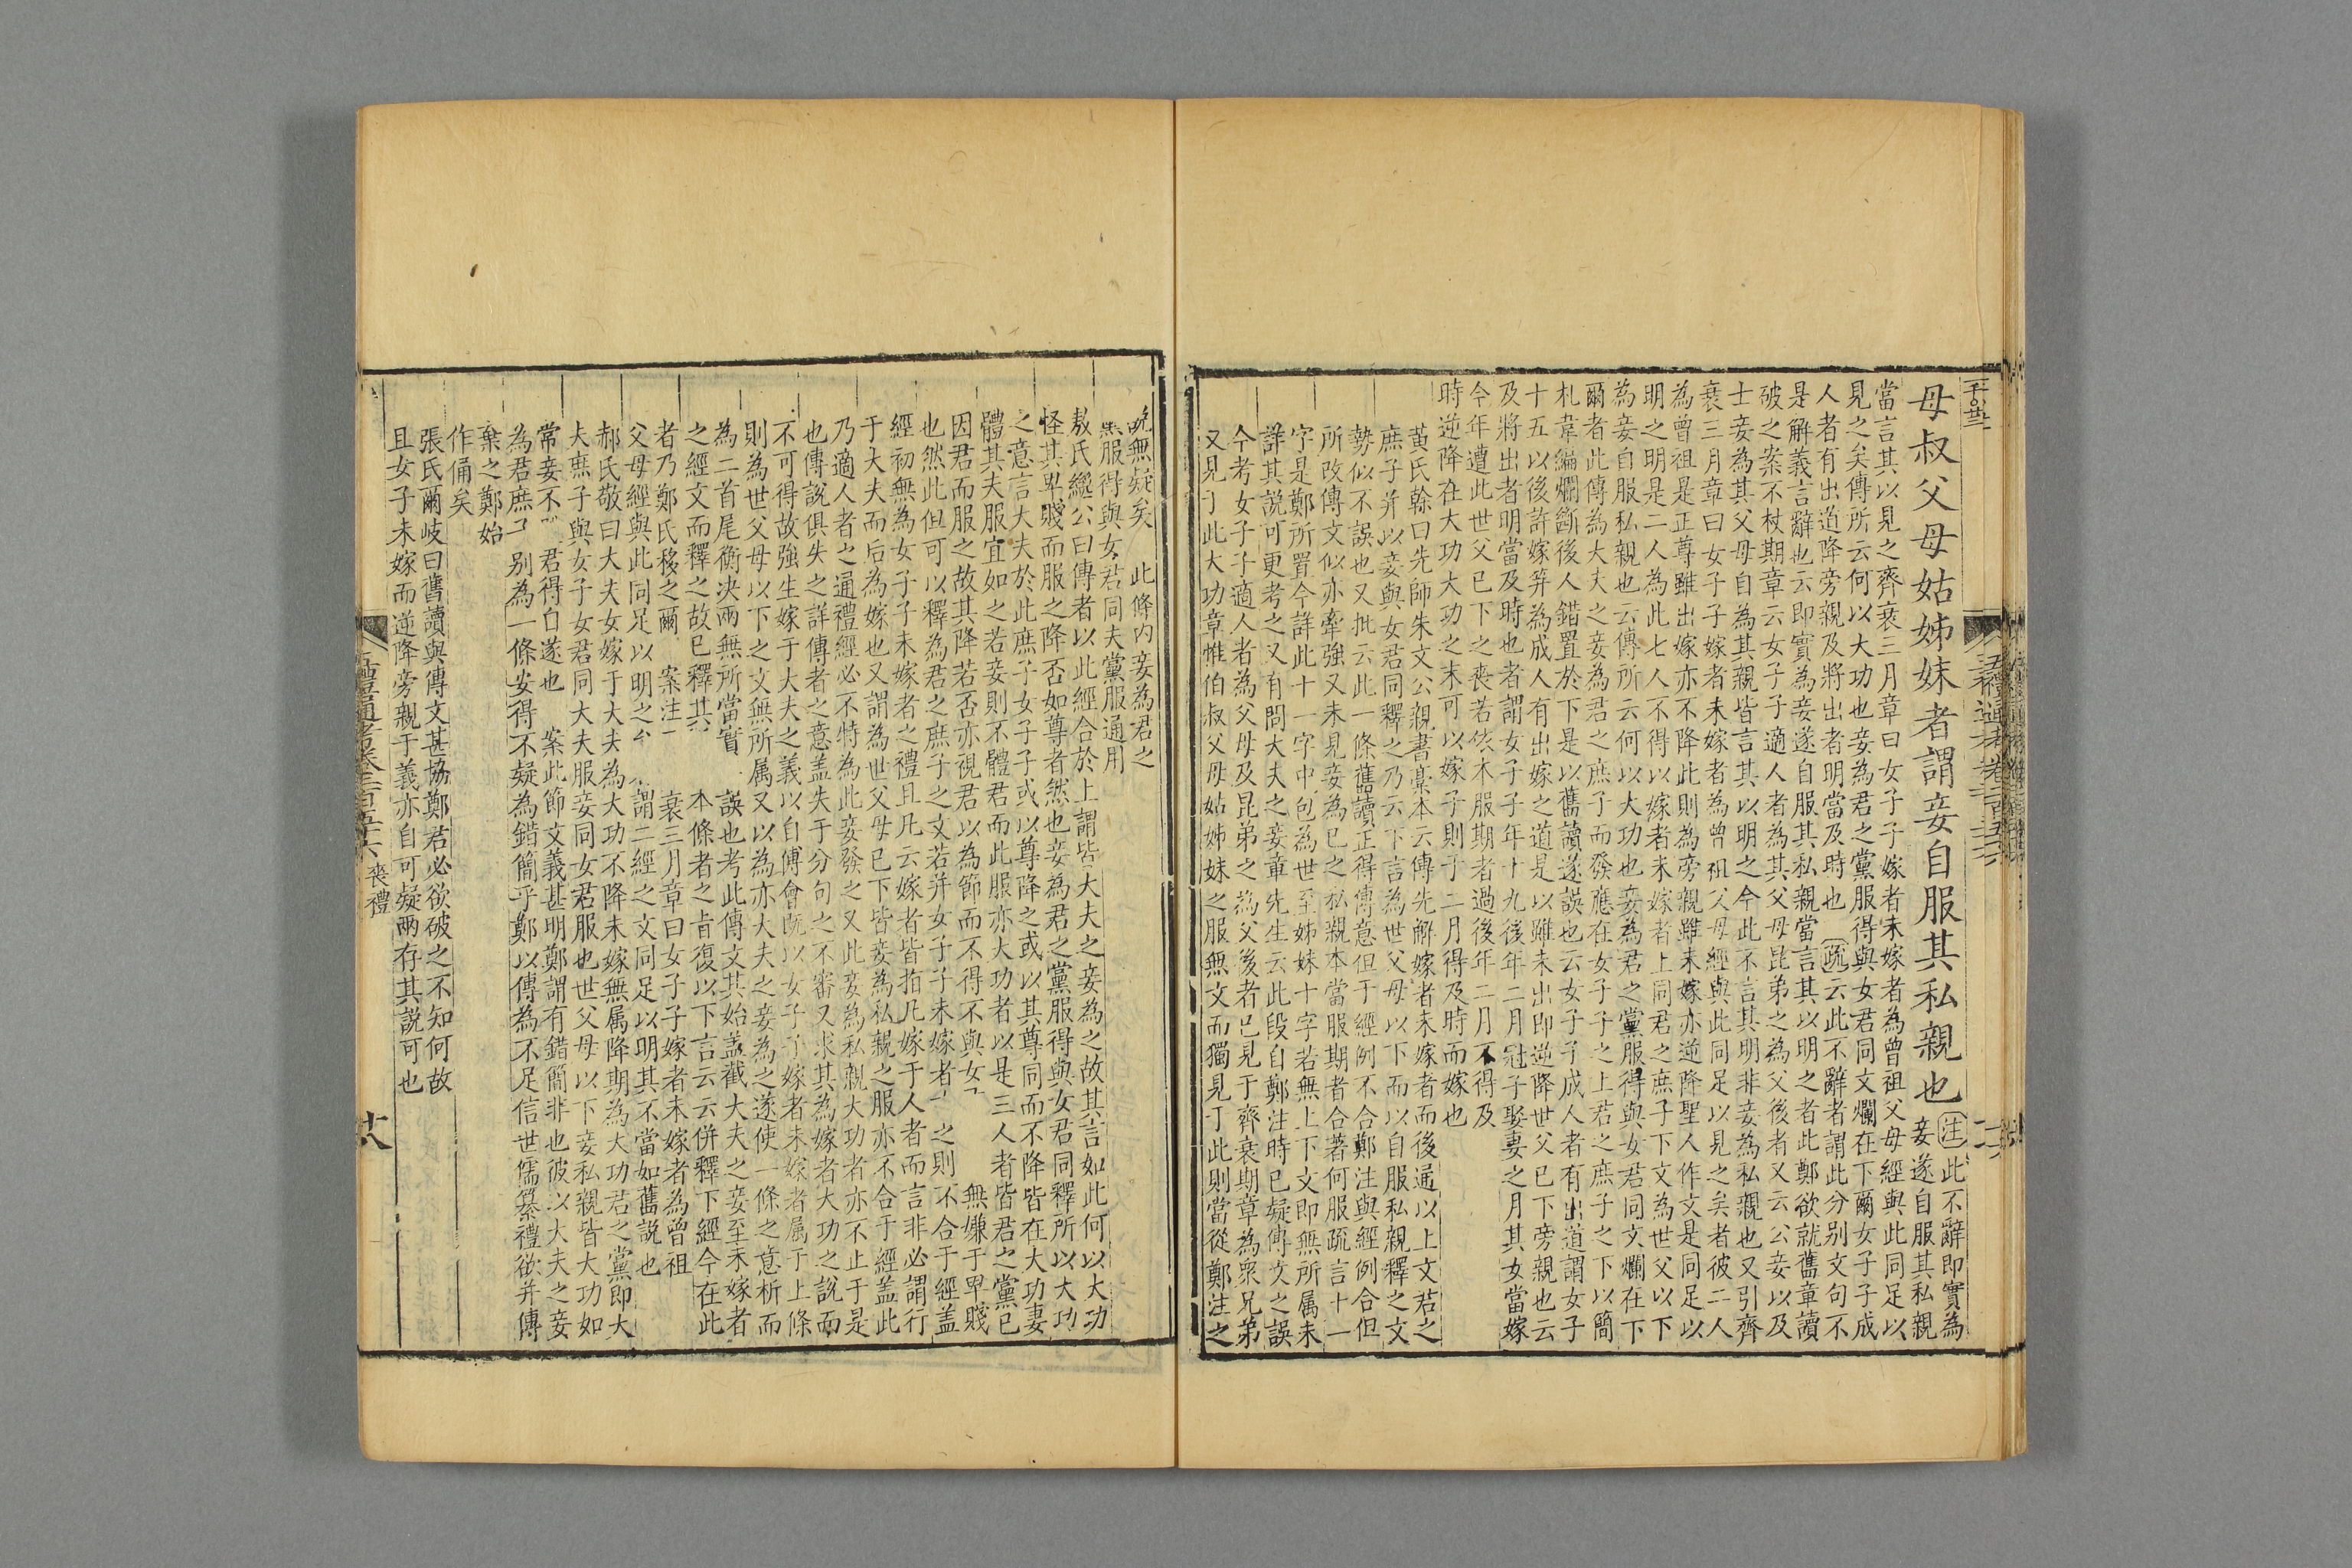 母叔父母姑姊妹者謂妾自服其私親也
注此不辭即實為
妾遂自服其私親
當言其以見之齊衰三月章曰女子子嫁者未嫁者為曾祖父母經與此同足以
見之矣傳所云何以大功也妾為君之黨服得與女君同文爛在下爾女子子成
人者有出道降旁親及將出者明當及時也疏云此不辭者謂此分别文句不
是解義言辭也云即實為妾遂自服其私親當言其以明之者此鄭欲就舊章讀
破之案不杖期章云女子子適人者為其父母昆弟之為父後者又云公妾以及
士妾為其父母自為其親皆言其以明之今此不言其明非妾為私親也又引齊
衰三月章曰女子子嫁者未嫁者為曾祖父母經與此同足以見之矣者彼二人
為曾祖是正尊雖出嫁亦不降此則為旁親雖未嫁亦逆降聖人作文是同足以
明之明是二人為此七人不得以嫁者未嫁者上同君之庶子下文為世父以下
為妾自服私親也云傳所云何以大功也妾為君之黨服得與女君同文爛在下
爾者此傳為大夫之妾為君之庶子而發應在女子子之上君之庶子之下以簡
札韋編爛斷後人錯置於下是以舊讀遂誤也云女子子成人者有出道謂女子
十五以後許嫁笄為成人有出嫁之道是以雖未出即逆降世父已下旁親也云
及將出者明當及時也者謂女子子年十九後年二月冠子娶妻之月其女當嫁
今年遭此世父已下之喪若依本服期者過後年二月不得及
時逆降在大功大功之末可以嫁子則于二月得及時而嫁也
黃氏榦曰先師朱文公親書藁本云傳先解嫁者未嫁者而後通以上文君之
庶子并以妾與女君同釋之乃云下言為世父母以下而以自服私親釋之文
勢似不誤也又批云此一條舊讀正得傳意但于經例不合鄭注與經例合但
所改傳文似亦牽強又未見妾為已之私親本當服期者合著何服疏言十一
字是鄭所置今詳此十一字中包為世至姊妹十字若無上下文即無所属未
詳其說可更考之又有問大夫之妾章先生云此段自鄭注時已疑傳文之誤
今考女子子適人者為父母及昆弟之為父後者已見于齊衰期章為衆兄弟
又見于此大功章惟伯叔父母姑姊妹之服無文而獨見于此則當從鄭注之
說無疑矣 此條内妾為君之
黨服得與女君同大黨服通用
敖氏繼公曰傳者以此經合於上謂皆大夫之妾為之故其言如此何以大功
怪其卑賤而服之降否如尊者然也妾為君之黨服得與女君同釋所以大功
之意言大夫於此庶子女子子或以尊降之或以其尊同而不降皆在大功妻
體其夫服宜如之若妾則不體君而此服亦大功者以是三人者皆君之黨已
因君而服之故其降若否亦視君以為節而不得不與女 無嫌于卑賤
也然此但可以釋為君之庶子之文若并女子子未嫁者 之則不合于經盖
經初無為女子子未嫁者之禮且凡云嫁者皆指凡嫁于人者而言非必謂行
于大夫而后為嫁也又謂為世父母已下皆妾為私親之服亦不合于經盖此
乃適人者之通禮經必不特為此妾發之又此妾為私親大功者亦不止于是
也傳說俱失之詳傳者之意盖失于分句之不審又求其為嫁者大功之說而
不可得故強生嫁于大夫之義以自傅會旣以女子子嫁者未嫁者属于上條
則為世父母以下之文無所属又以為亦大夫之妾為之遂使一條之意析而
為二首尾衡決兩無所當實 誤也考此傳文其始盖截大夫之妾至未嫁者
之經文而釋之故已釋其 本條者之㫖復以下言云云併釋下經今在此
者乃鄭氏移之爾 案注 衰三月章曰女子子嫁者未嫁者為曾祖
父母經與此同足以明之 謂二經之文同足以明其不當如舊說也
郝氏敬曰大夫女嫁于大夫為大功不降未嫁無属降期為大功君之黨即大
夫庶子與女子子女君同大夫服妾同女君服也世父母以下妾私親皆大功如
常妾不 君得自遂也 案此節文義甚明鄭謂有錯簡非也彼以大夫之妾
為君庶子别為一條安得不疑為錯簡乎鄭以傳為不足信世儒纂禮欲并傳
棄之鄭始
作俑矣
張氏爾岐曰舊讀與傳文甚協鄭君必欲破之不知何故
且女子未嫁而逆降旁親于義亦自可疑兩存其說可也
五禮通考卷二百五十六 喪禮
十八